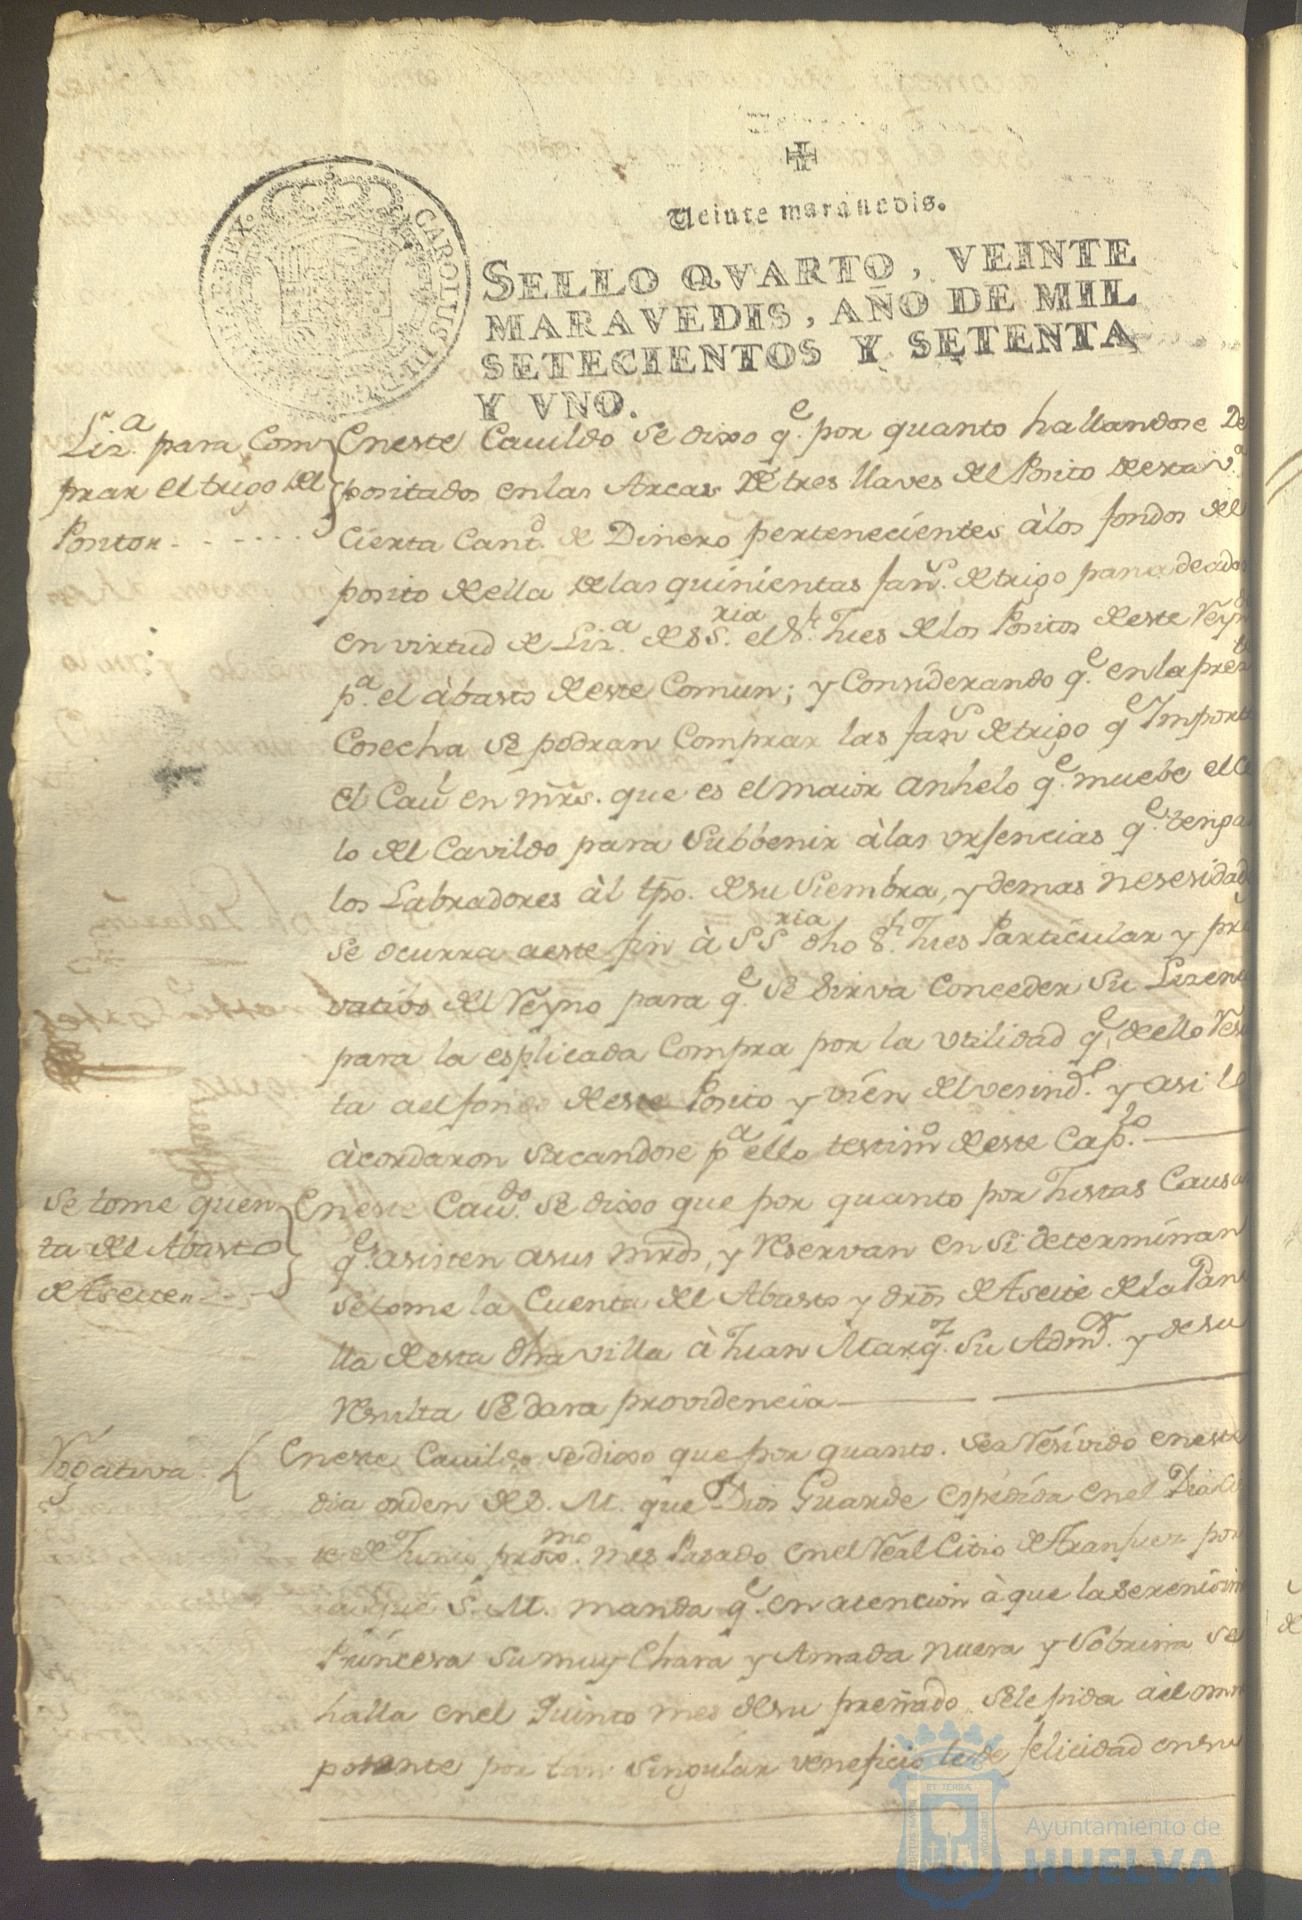 Veinte maravedis.
CAROLUS III D G HISPAN REX
SELLO QVARTO, VEINTE
MARAVEDIS, AÑO DE MIL
SETECIENTOS Y SETENTA
Y VNO.
Liz.a para Com
prar el trigo del
Positon
Eneste Cauildo se dixo q.e por quanto hallandose De
positados enlas Arcas De tres llaves del Posito de esta v.a
Cierta Cant.d de Dinero pertenecientes àlos fondos del
posito de ella de las quinientas fan.s de trigo panadeados
en virtud de Liz.a de S S.ria el S.r Jues de los Positos de este Reyno
p.a el àbasto de este Comun; y Considerando q.e en la pres.te
Cosecha se podran Comprar las fan.s de trigo q.e Importe
el Cau.l en mrs. que es el maior anhelo q.e muebe el Ce
lo del Cavildo para Subbenir à las vrsencias q.e tengan
los Labradores àl tpo. de su Siembra, y demas nesesidades
Se ocurra a este fin à S S.ria dho S.r Jues Particular y pri
vatibo del Reyno para q.e se Sirva Conceder Su Lizencia
para la esplicada Compra por la vtilidad q.e de ello Resul
ta a el fondo de este Posito y vien del vesind.o y asi lo
àcordaron sacandose p.a ello testim.o de este Cap.lo
Se tome quen
ta del Abasto
de Aseite
Eneste Cau.do se dixo que por quanto por Justas Causas
q.e asisten a sus mrds, y Reservan en Si determinan
se tome la Cuenta del Abasto y dros de Aseite de la Pani
lla de esta dha villa à Juan Marq.z Su Adm.r y de su
Resulta se dara providencia
Rogativa
Eneste Cauildo se dixo que por quanto. sea Resivido en este
dia orden de S. M. que Dios Guarde espedida en el Dia
te de Junio proxmo. mes Pasado en el Real Citio de Aranjuez por
la que S. M. manda q.e en atencion à que la Serenisima
Princesa su muy Chara y Amada nuera y Sobrina se
halla en el Quinto mes de su preñado, se le pida àel omni
potente por tan Singular veneficio le de felicidad en su
Ayuntamiento de
HUELVA